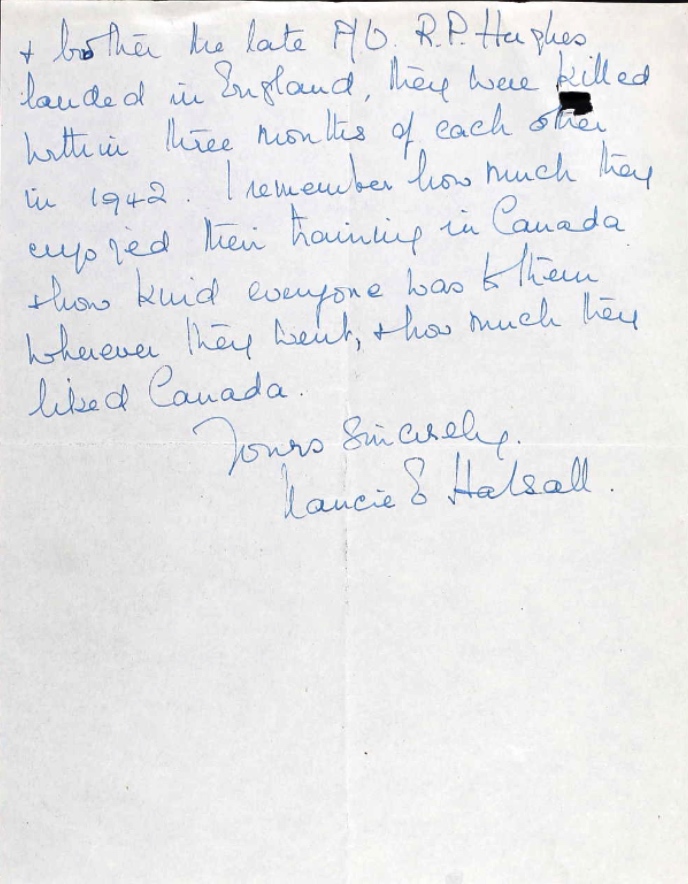 + brother the late P/O. R.P. Hughes
landed in England, they were killed
within three months of each other
in 1942. I remember how much they
enjoyed their training in Canada
+ how kind everyone was to them
wherever they went, + how much they
liked Canada.
Yours Sincerely.
Nancie E Halsall.